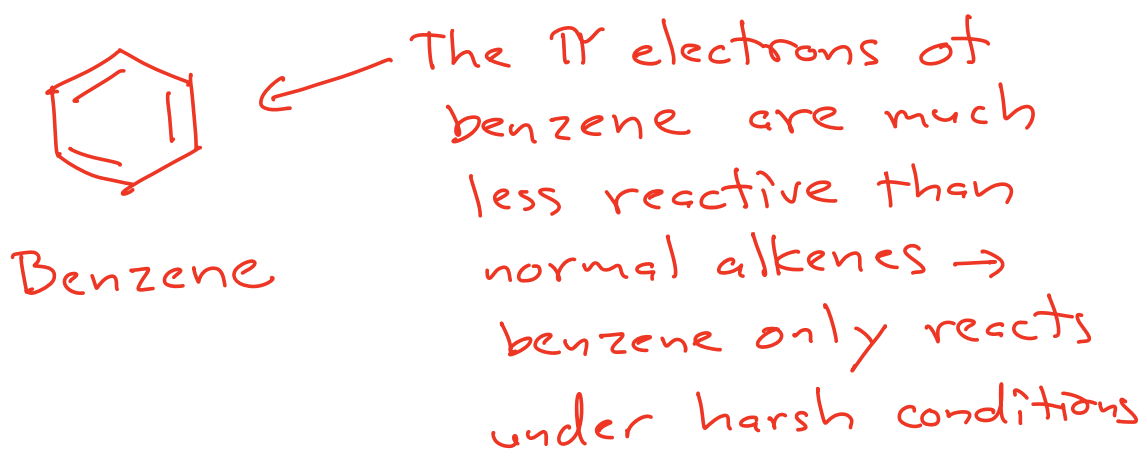 The π electrons of
benzene are much
less reactive than
normal alkenes →
benzene only reacts
under harsh conditions
Benzene